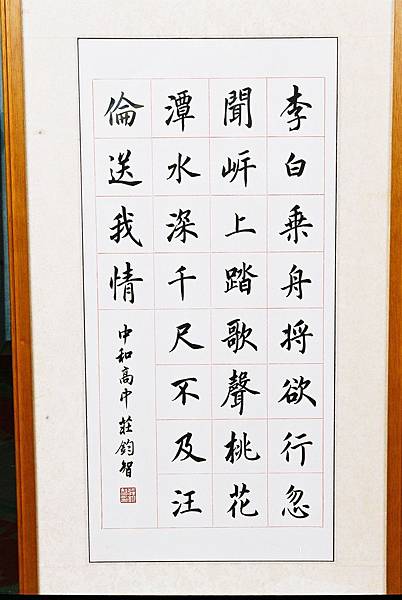 李白乗舟将欲行忽
聞岍上踏歌聲桃花
潭水深千尺不及汪
倫送我情
中和高中 莊鈞智